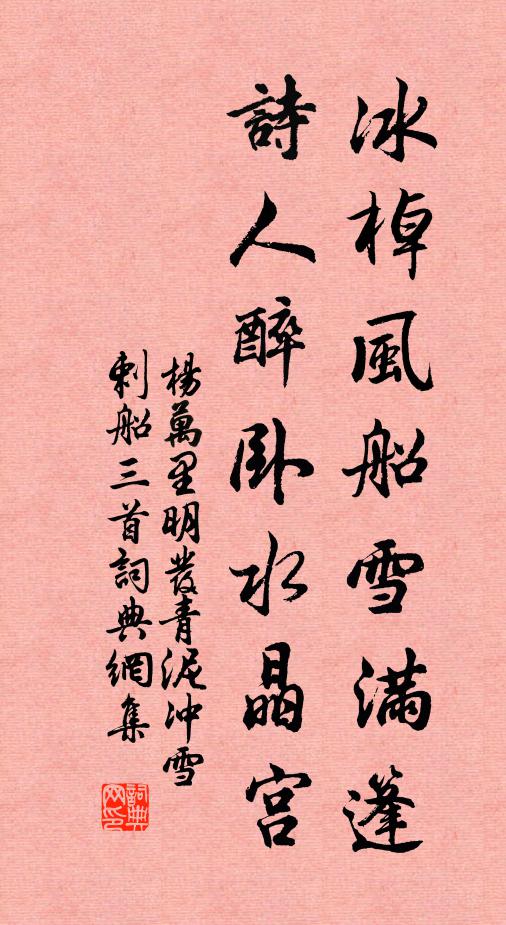 冰棹風船雪满蓬
詩人醉卧水晶宫
楊萬里明發青泥冲雪
刺船三首詞典網集
詞典网印